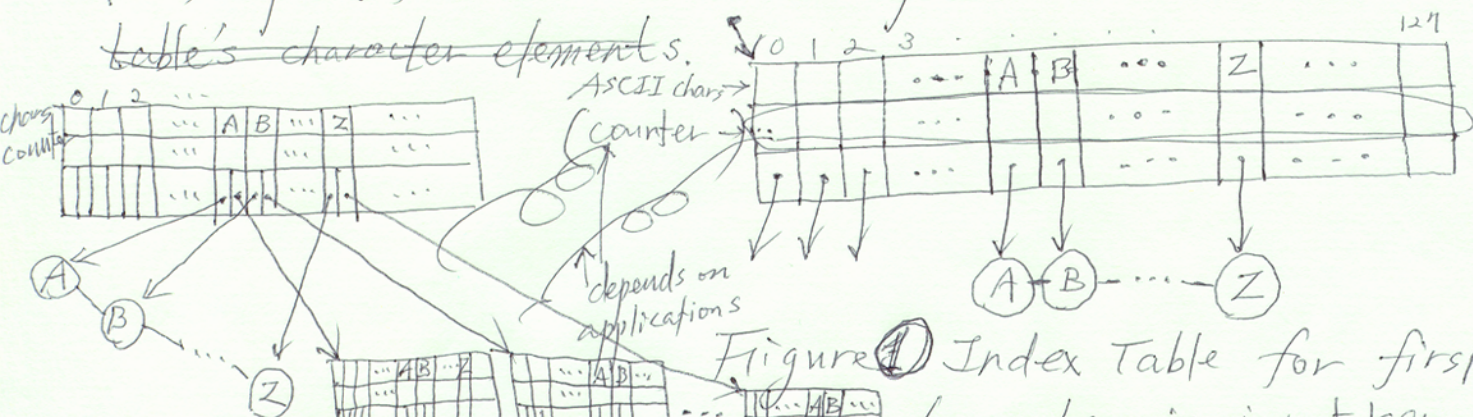 table's character elements.
0 1 2 3 . . . . . . 127
ASCII chars
... A B ... Z ...
counter
... ... ...
... ... ...
A B ... Z
0 1 2 ...
chars
... A B ... Z ...
counter
... ... ...
... ... ...
A
B
...
Z
depends on
applications
... A B ... Z
...
... A B ...
...
...
... A B ...
Figure 1 Index Table for first